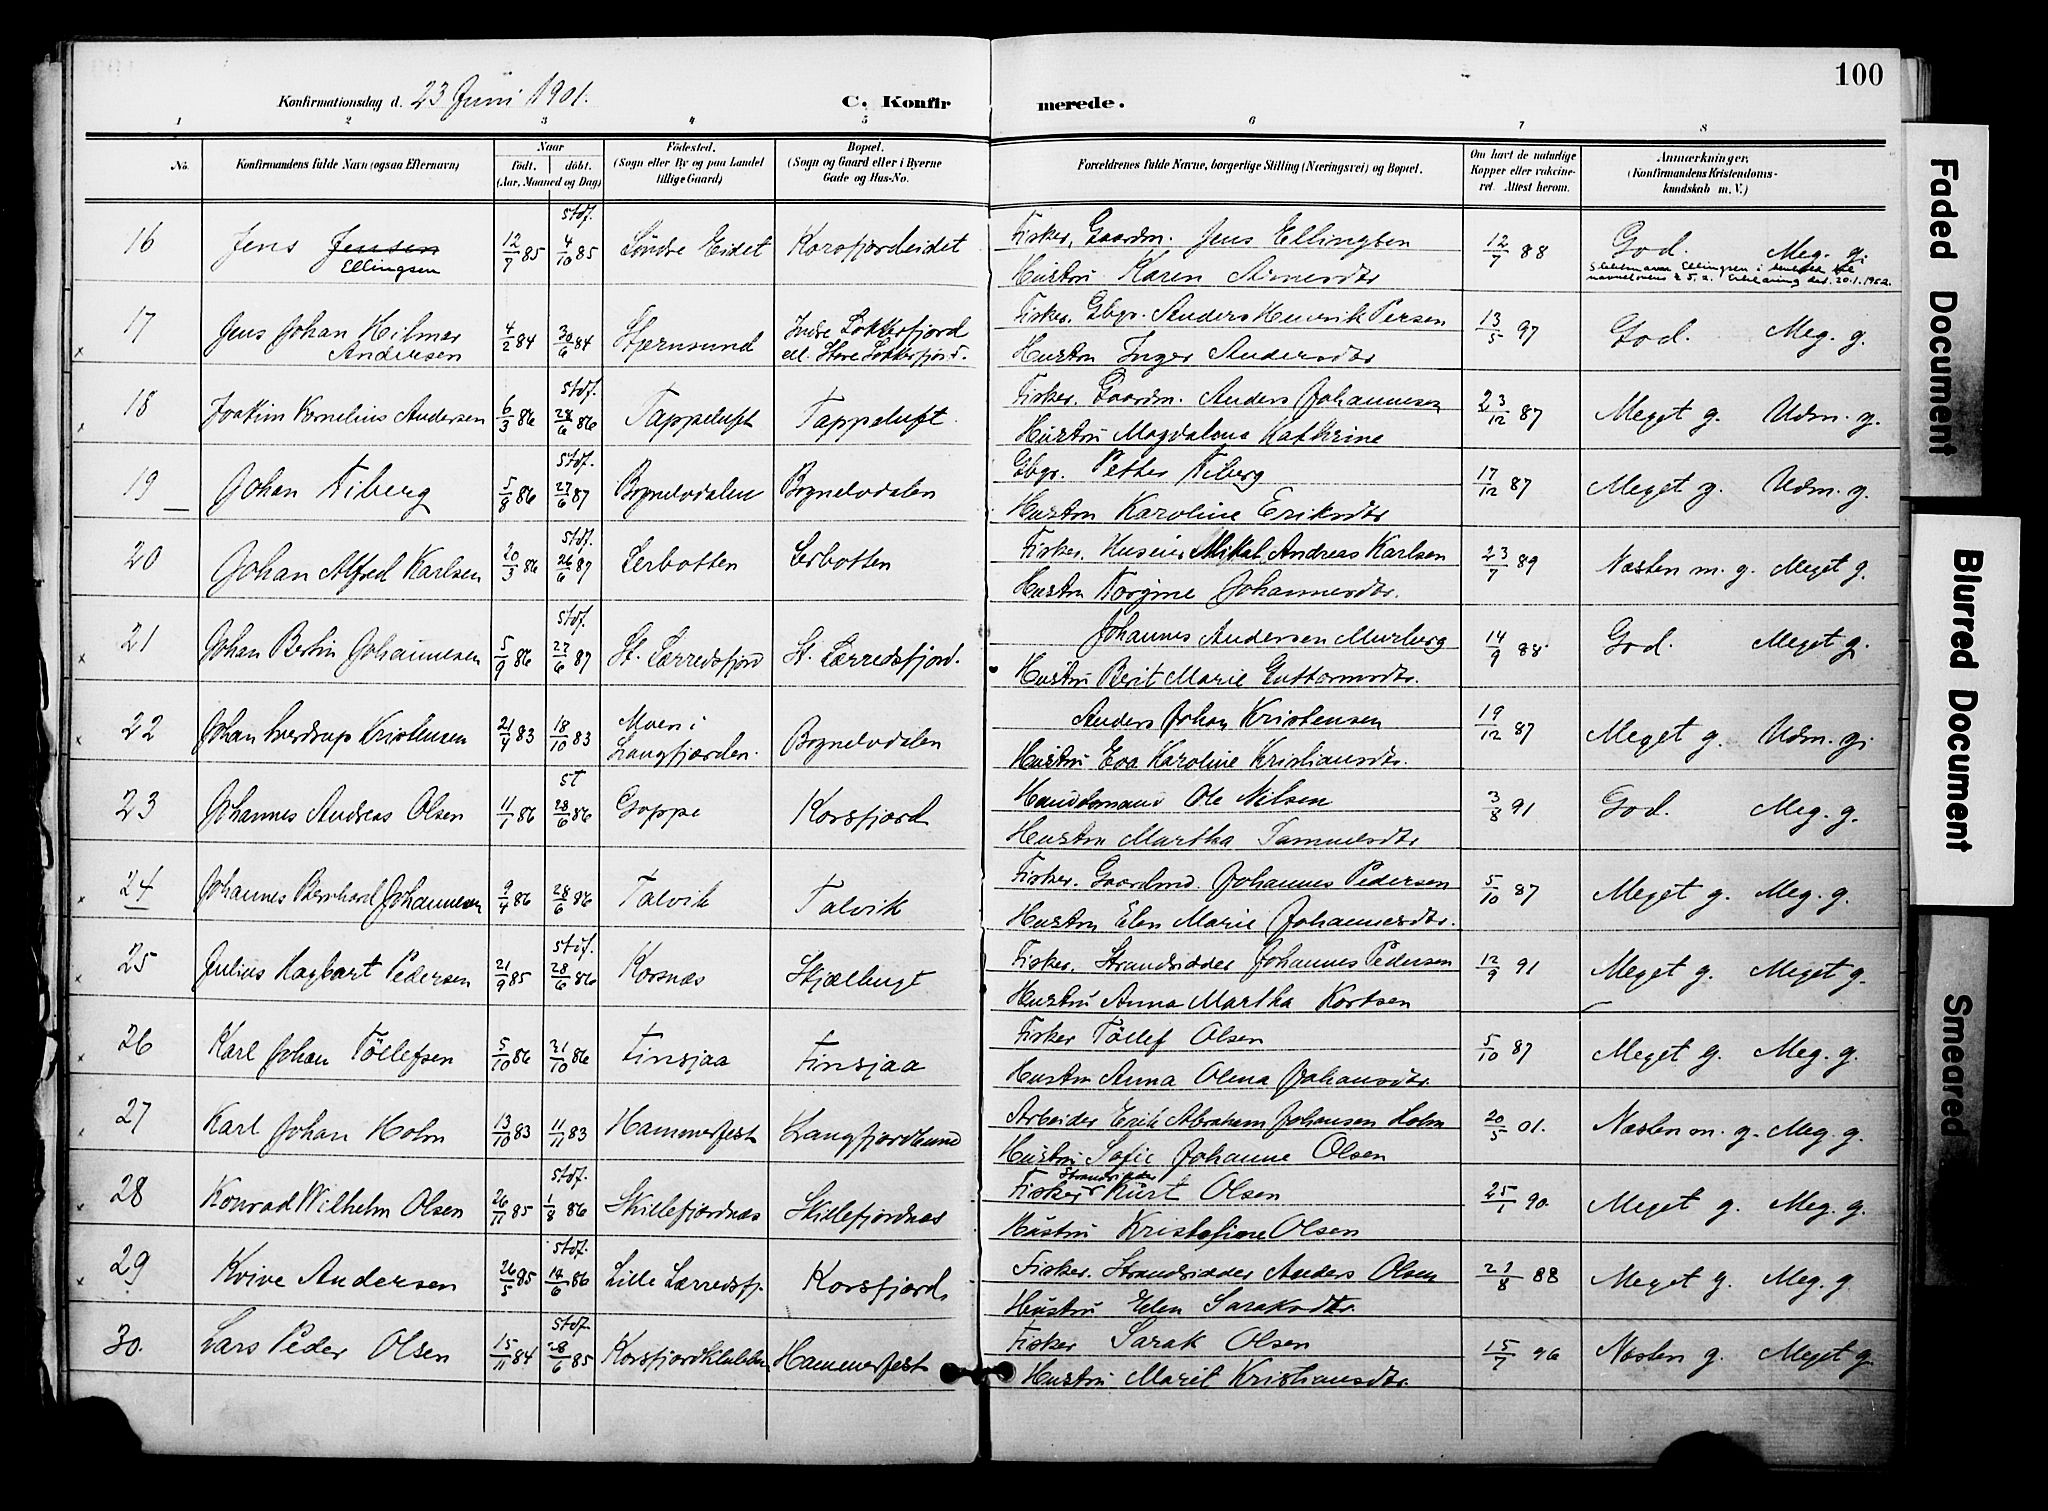 100
Konfirmationsdag d. 23 Juni 1901. C. Konfirmerede.
1 2 3 4 5 6 7 8
No. Konfirmandens fulde Navn (ogsaa Efternavn) Naar født. døbt. (Aar, Maaned og Dag) Fødested. (Sogn eller By og paa Landet tillige Gaard) Bopæl. (Sogn og Gaard eller i Byerne Gade og Hus-No. Forældrenes fulde Navne, borgerlige Stilling (Næringsvei) og Bopæl. Om havt de naturlige Kopper eller vakcineret. Attest herom. Anmærkninger. (Konfirmandens Kristendomskundskab m. V.)
16 Jens Jensen Ellingsen 12/7 85 stdf. 4/10 85 Søndre Eidet Korsfjordeidet Fisker, Gaardm. Jens Ellingsen 12/7 88 God. Meg. g.
Hustru Karen Arnesdtr
17 Jens Johan Hilmar Andersen 4/2 84 30/6 84 Stjernsund Indre Lokkefjord ell. Store Lokkefjord. Fisker. Gbgr. Anders Henrik Persen 13/5 97 God. Meg. g.
Hustru Inger Andersdtr
18 Joakim Kornelius Andersen 6/3 86 stdf. 28/6 86 Tappeluft Tappeluft Fisker. Gaardm. Anders Johannesen 23/12 87 Meget g. Udm. g.
Hustru Magdalena Kathrine
19 Johan Fiberg 5/8 86 stdf. 27/6 87 Bognelvdalen Bognelvdalen Gbgr. Petter Fiberg 17/12 87 Meget g. Udm. g.
Hustru Karoline Eriksdtr
20 Johan Alfred Karlsen 20/3 86 stdf. 26/6 87 Lerbotten Lerbotten Fisker. Huseier Mikal Andreas Karlsen 23/7 89 Næsten m. g. Meget g.
Hustru Norgine Johannesdtr.
21 Johan Bertin Johannesen 5/9 86 stdf. 27/6 87 St. Lærredsfjord St. Lærredsfjord. Johannes Andersen Murberg 14/9 88 God. Meget g.
Hustru Berit Marie Guttormsdtr.
22 Johan Sverdrup Kristensen 21/4 83 18/10 83 Moen i Langfjorden. Bognelvdalen Anders Johan Kristensen 19/12 87 Meget g. Udm. g.
Hustru Eva Karoline Kristiansdtr.
23 Johannes Andreas Olsen 11/1 86 st 28/6 86 Goppe Korsfjord Handelsmand Ole Nilsen 3/8 91 God. Meg. g.
Hustru Martha Samuelsdtr
24 Johannes Bernhard Johannesen 9/4 86 28/6 86 Talvik Talvik Fisker. Gaardmd. Johannes Pedersen 5/10 87 Meget g. Meg. g.
Hustru Elen Marie Johannesdtr.
25 Julius Hagbart Pedersen 21/9 85 stdf. 28/6 86 Korsnæs Skjælbugt Fisker. Strandsidder Johannes Pedersen 12/9 91 Meget g. Meget g.
Hustru Anna Martha Kortsen
26 Karl Johan Töllefsen 5/10 86 31/10 86 Finsjaa Finsjaa Fisker Töllef Olsen 5/10 87 Meget g. Meg. g.
Hustru Anna Olina Johansdtr.
27 Karl Johan Holm 13/10 83 11/11 83 Hammerfest Langfjordbund Arbeider Erik Abraham Johansen Holm 20/5 01. Næsten m. g. Meg. g.
Hustru Sofie Johanne Olsen
28 Konrad Wilhelm Olsen 26/11 85 stdf. 1/8 86 Skillefjordnæs Skillefjordnæs Fisker Strandsidder Kurt Olsen 25/1 90. Meget g. Meg. g.
Hustru Kristofine Olsen
29 Kvive Andersen 26/5 85 stdf. 18/6 86 Lille Lærredsfj. Korsfjord Fisker. Strandsidder Anders Olsen 21/8 88 Meget g. Meg. g.
Hustru Elen Saraksdtr.
30. Lars Peder Olsen 15/11 84 stdf. 28/6 85 Korsfjordklubben Hammerfest Fisker Sarak Olsen 15/7 96 Næsten g. Meget g.
Hustru Marit Kristiansdtr.
Faded Document
Blurred Document
Smeared